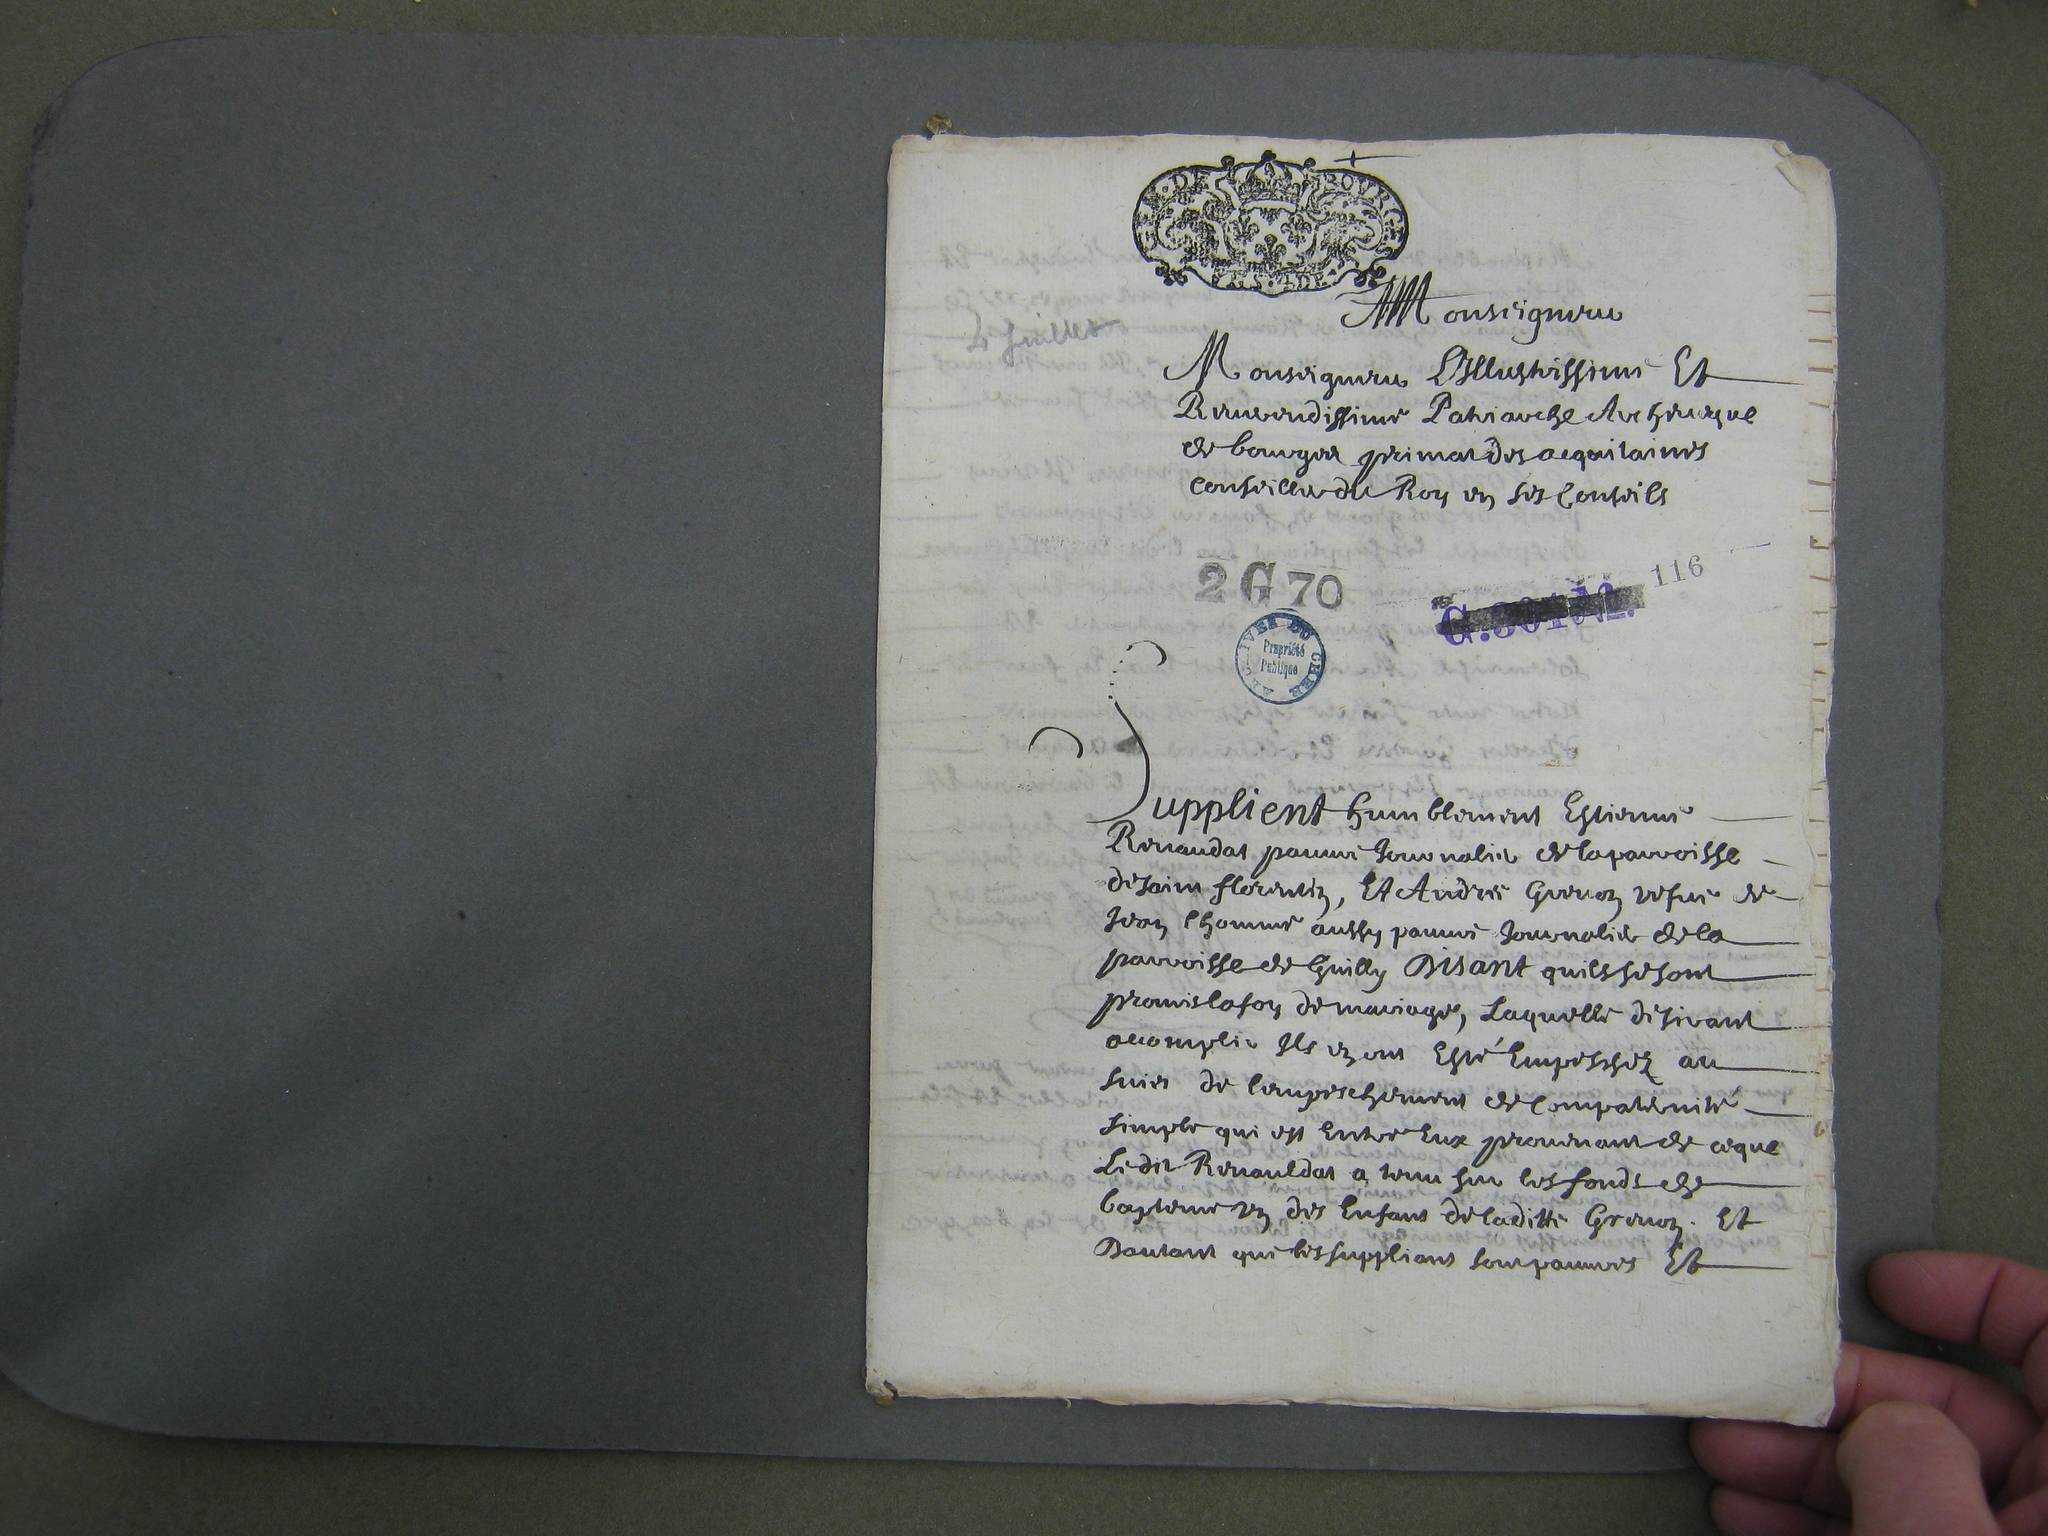 GEN. DE BOURGES
4 Juillet
A Monseigneur
Monseigneur L'Illustrissime Et
Reuerendissime Patriarche Archeuesque
de bourges primat des acquitaines
conseiller du Roy en ses Conseils
2 G 70
116
ARCHIVES DU CHER
Propriété
Publique
Supplient humblement Estienne
Renaudat pauure Journalier de la parroisse
de saint florentin, Et Andrée Grenon vefue de
Jean lhomme aussy pauure Journalier de la
parroisse de Guilly Disant quils se sont
promis la foy de mariage, Laquelle desirant
acomplir Ils en ont Esté Empeschez au
suiet de lempeschement de Compaternité
simple qui est Entre Eux prouenant de ce que
Ledit Renauldat a tenu sur les fonds de
baptesme un des Enfans de laditte Grenon. Et
Dautant que les suppliants sont pauures Et